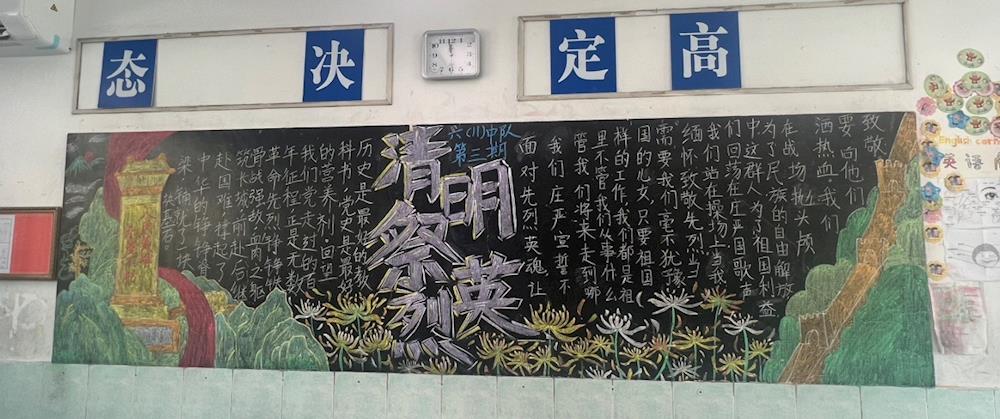 态决定高
六(11)中队
第三期
清明祭英烈
历史是最好的教
科书,党史是最好
的营养剂回望
我们党走过的百
年征程正是无数
革命先烈铮铮铁
骨战强敌血肉之躯
筑长城前赴后继
赴国难撑起了
中华的铮铮脊
梁
面对先烈英魂让
我们庄严宣誓不
管我们将来走到哪
里不管我们从事什么
样的工作,我们都是祖
国的儿女,只要祖国
需要我们毫不犹豫
缅怀致敬先烈,当
我们站在操场上当我
们回荡在庄严国歌声
中这群人为了祖国利益
为了民族的自由解放
在战场抛头颅
洒热血我们
要向他们
致敬
English corner
英语